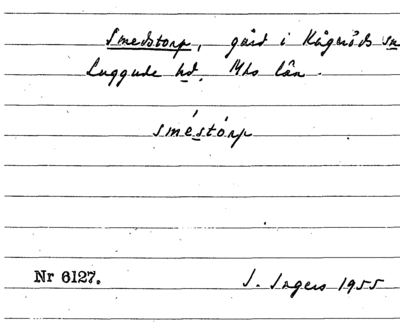 Smedstorp, gård i Kågeröds sn
Luggude hd. Mhs län.
sméstórp
Nr 6127.
I. Ingers 1955